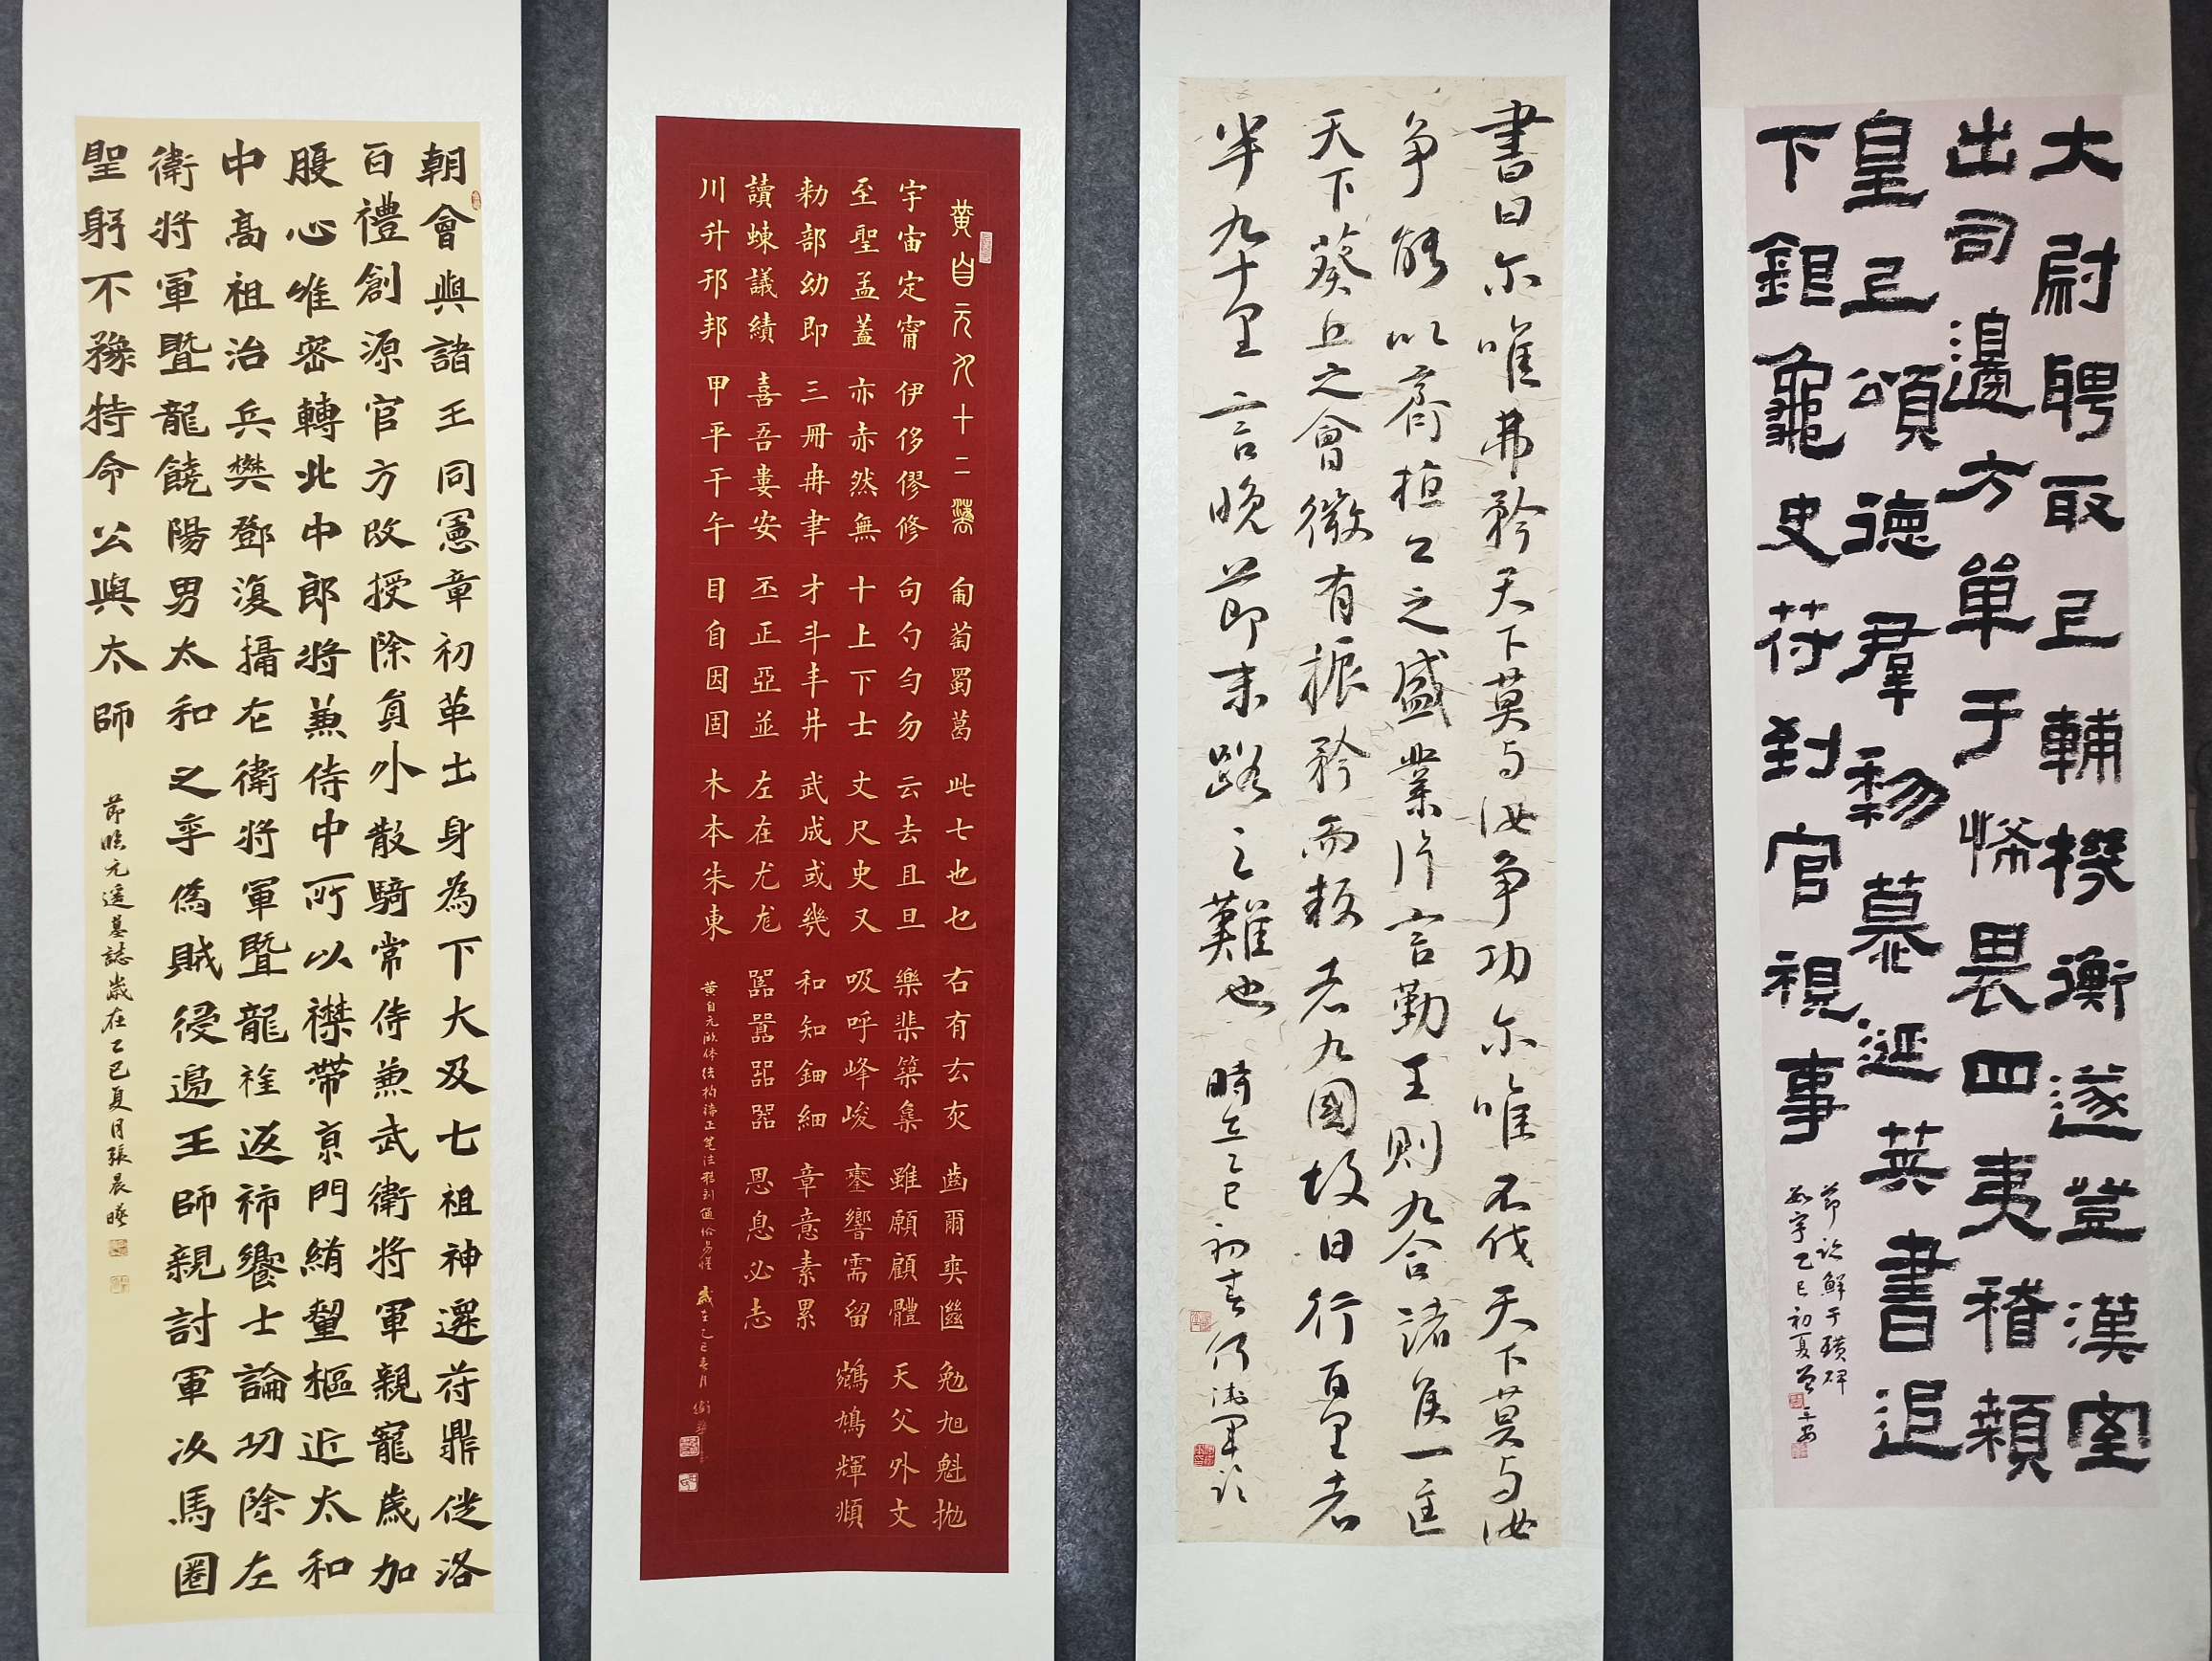 大尉聘取㠯輔機衡遂登漢室
出司邊方單于怖畏四夷稽顙
皇上頌德群黎慕涎英書追
下銀龜史符到官視事
節臨鮮于璜碑
乙巳初夏
書曰尔唯弗矜天下莫与汝争功尔唯不伐天下莫与汝
争能以齊桓公之盛業片言勤王則九合諸侯一匡
天下葵丘之會微有振矜而叛者九國故曰行百里者
半九十里言晚節末路之難也 時在乙巳初春
黄自元九十二灋 匍萄蜀葛 此七也乜 右有玄灰 齒爾爽 勉旭魁拋
宇宙定甯 伊侈僇修 句勺勻勿 云去且旦 樂梁築集 雖願顧體 天父外文
至聖孟蓋 亦赤然無 十上下士 丈尺史又 吸呼峰峻 鑾響需留 鳩輝頫
勑部幼即 三冊冉聿 才斗丰井 武成或幾 和知鈿細 章意素累
讀蝀議績 喜吾婁安 丕正亞並 左在尤尨 嚚囂噐器 恩息必志
川升邢邦 甲平干午 目自因固 木本朱東
黄自元欧体结构
朝會與諸王同憲章初革士身為下大及七祖神遷苻鼎徙洛
百禮創源官方改授除員外散騎常侍兼武衛將軍親寵歲加
腹心唯密轉北中郎將兼侍中所以襟帶京門綃樞近太和
中高祖治兵樊鄧復攝左衛將軍暨龍旌返斾饗士論功除左
衛將軍暨龍饒陽男太和之季偽賊侵邊王師親討軍次馬圈
聖躬不豫特命公與太師
節臨元遥墓誌歲在乙巳夏月張晨曦